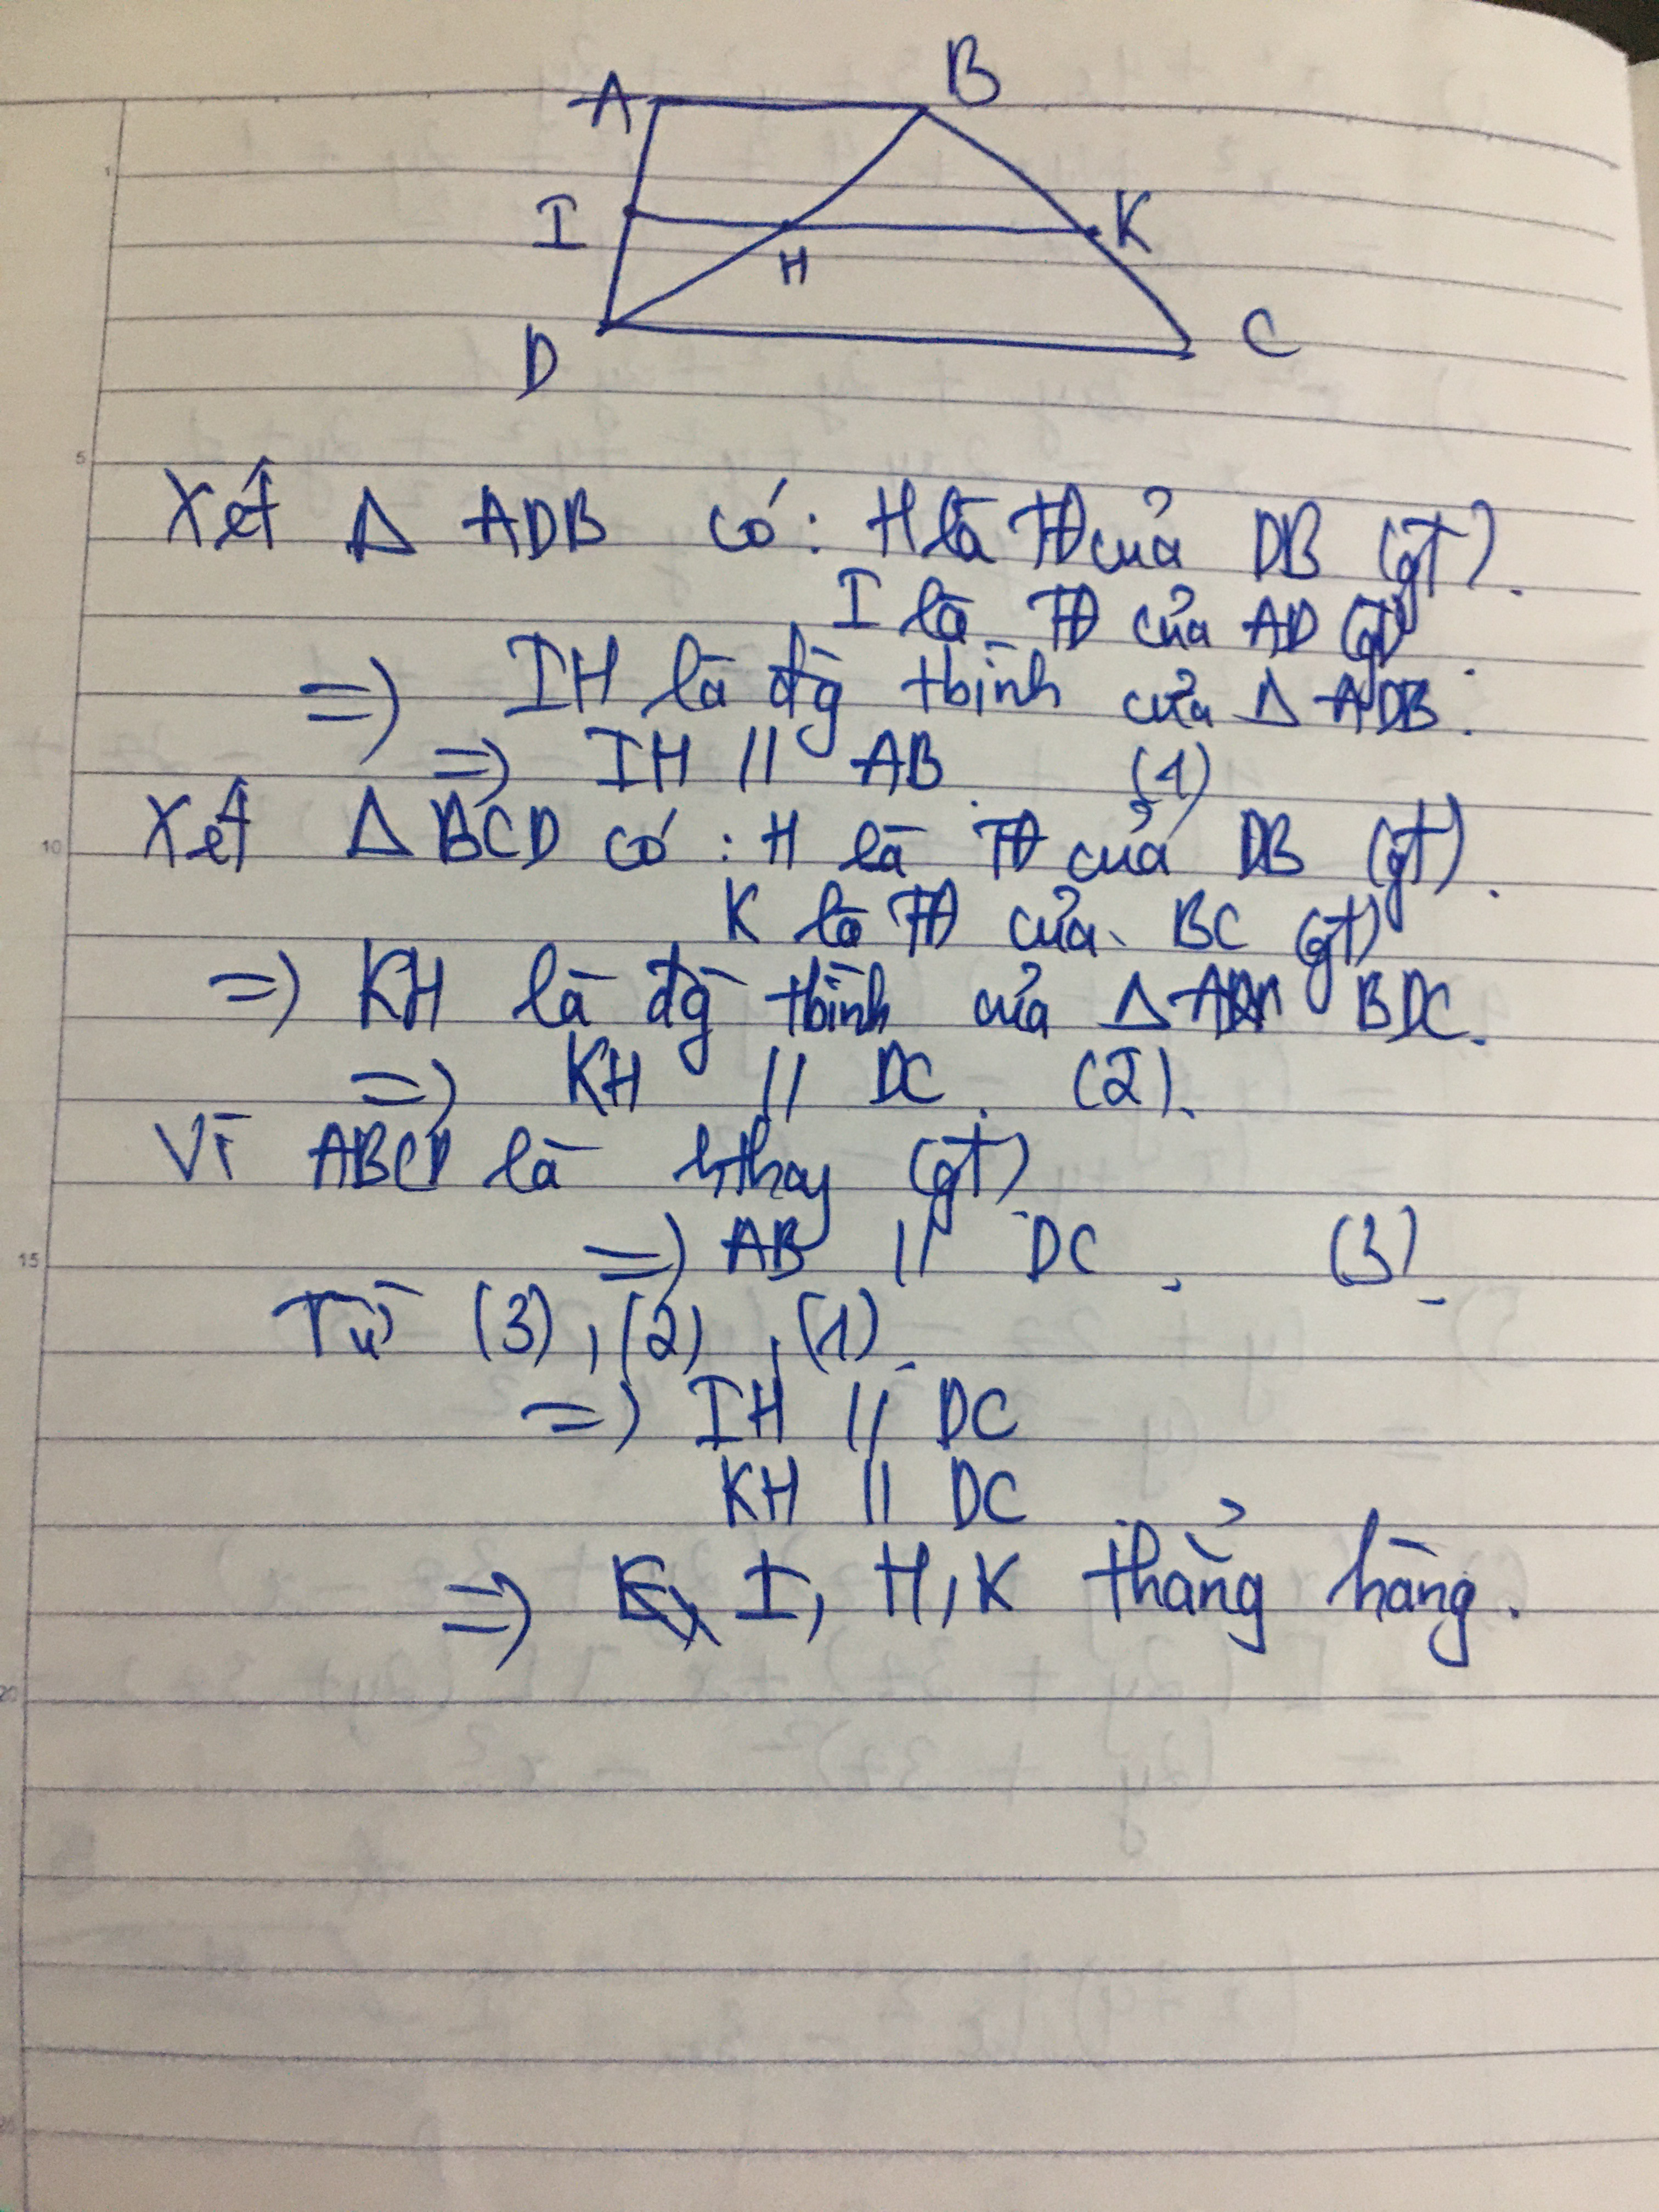 A B
I H K
D C
Xét Δ ADB có: H là TĐ của DB (gt).
I là TĐ của AD (gt)
=> IH là đg tbình của Δ ADB.
=> IH // AB. (1)
Xét Δ BCD có: H là TĐ của DB (gt).
K là TĐ của BC (gt)
=> KH là đg tbình của Δ BDC.
=> KH // DC. (2).
Vì ABCD là hthag (gt).
=> AB // DC. (3).
Từ (3), (2), (1).
=> IH // DC
KH // DC
=> I, H, K thẳng hàng.
1
5
10
15
20
25